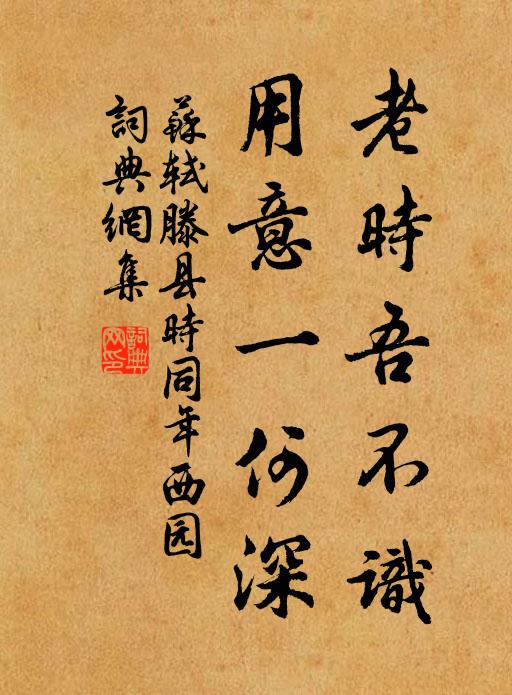 老時吾不識
用意一何深
蘇軾滕县時同年西园
詞典網集
詞典
网印